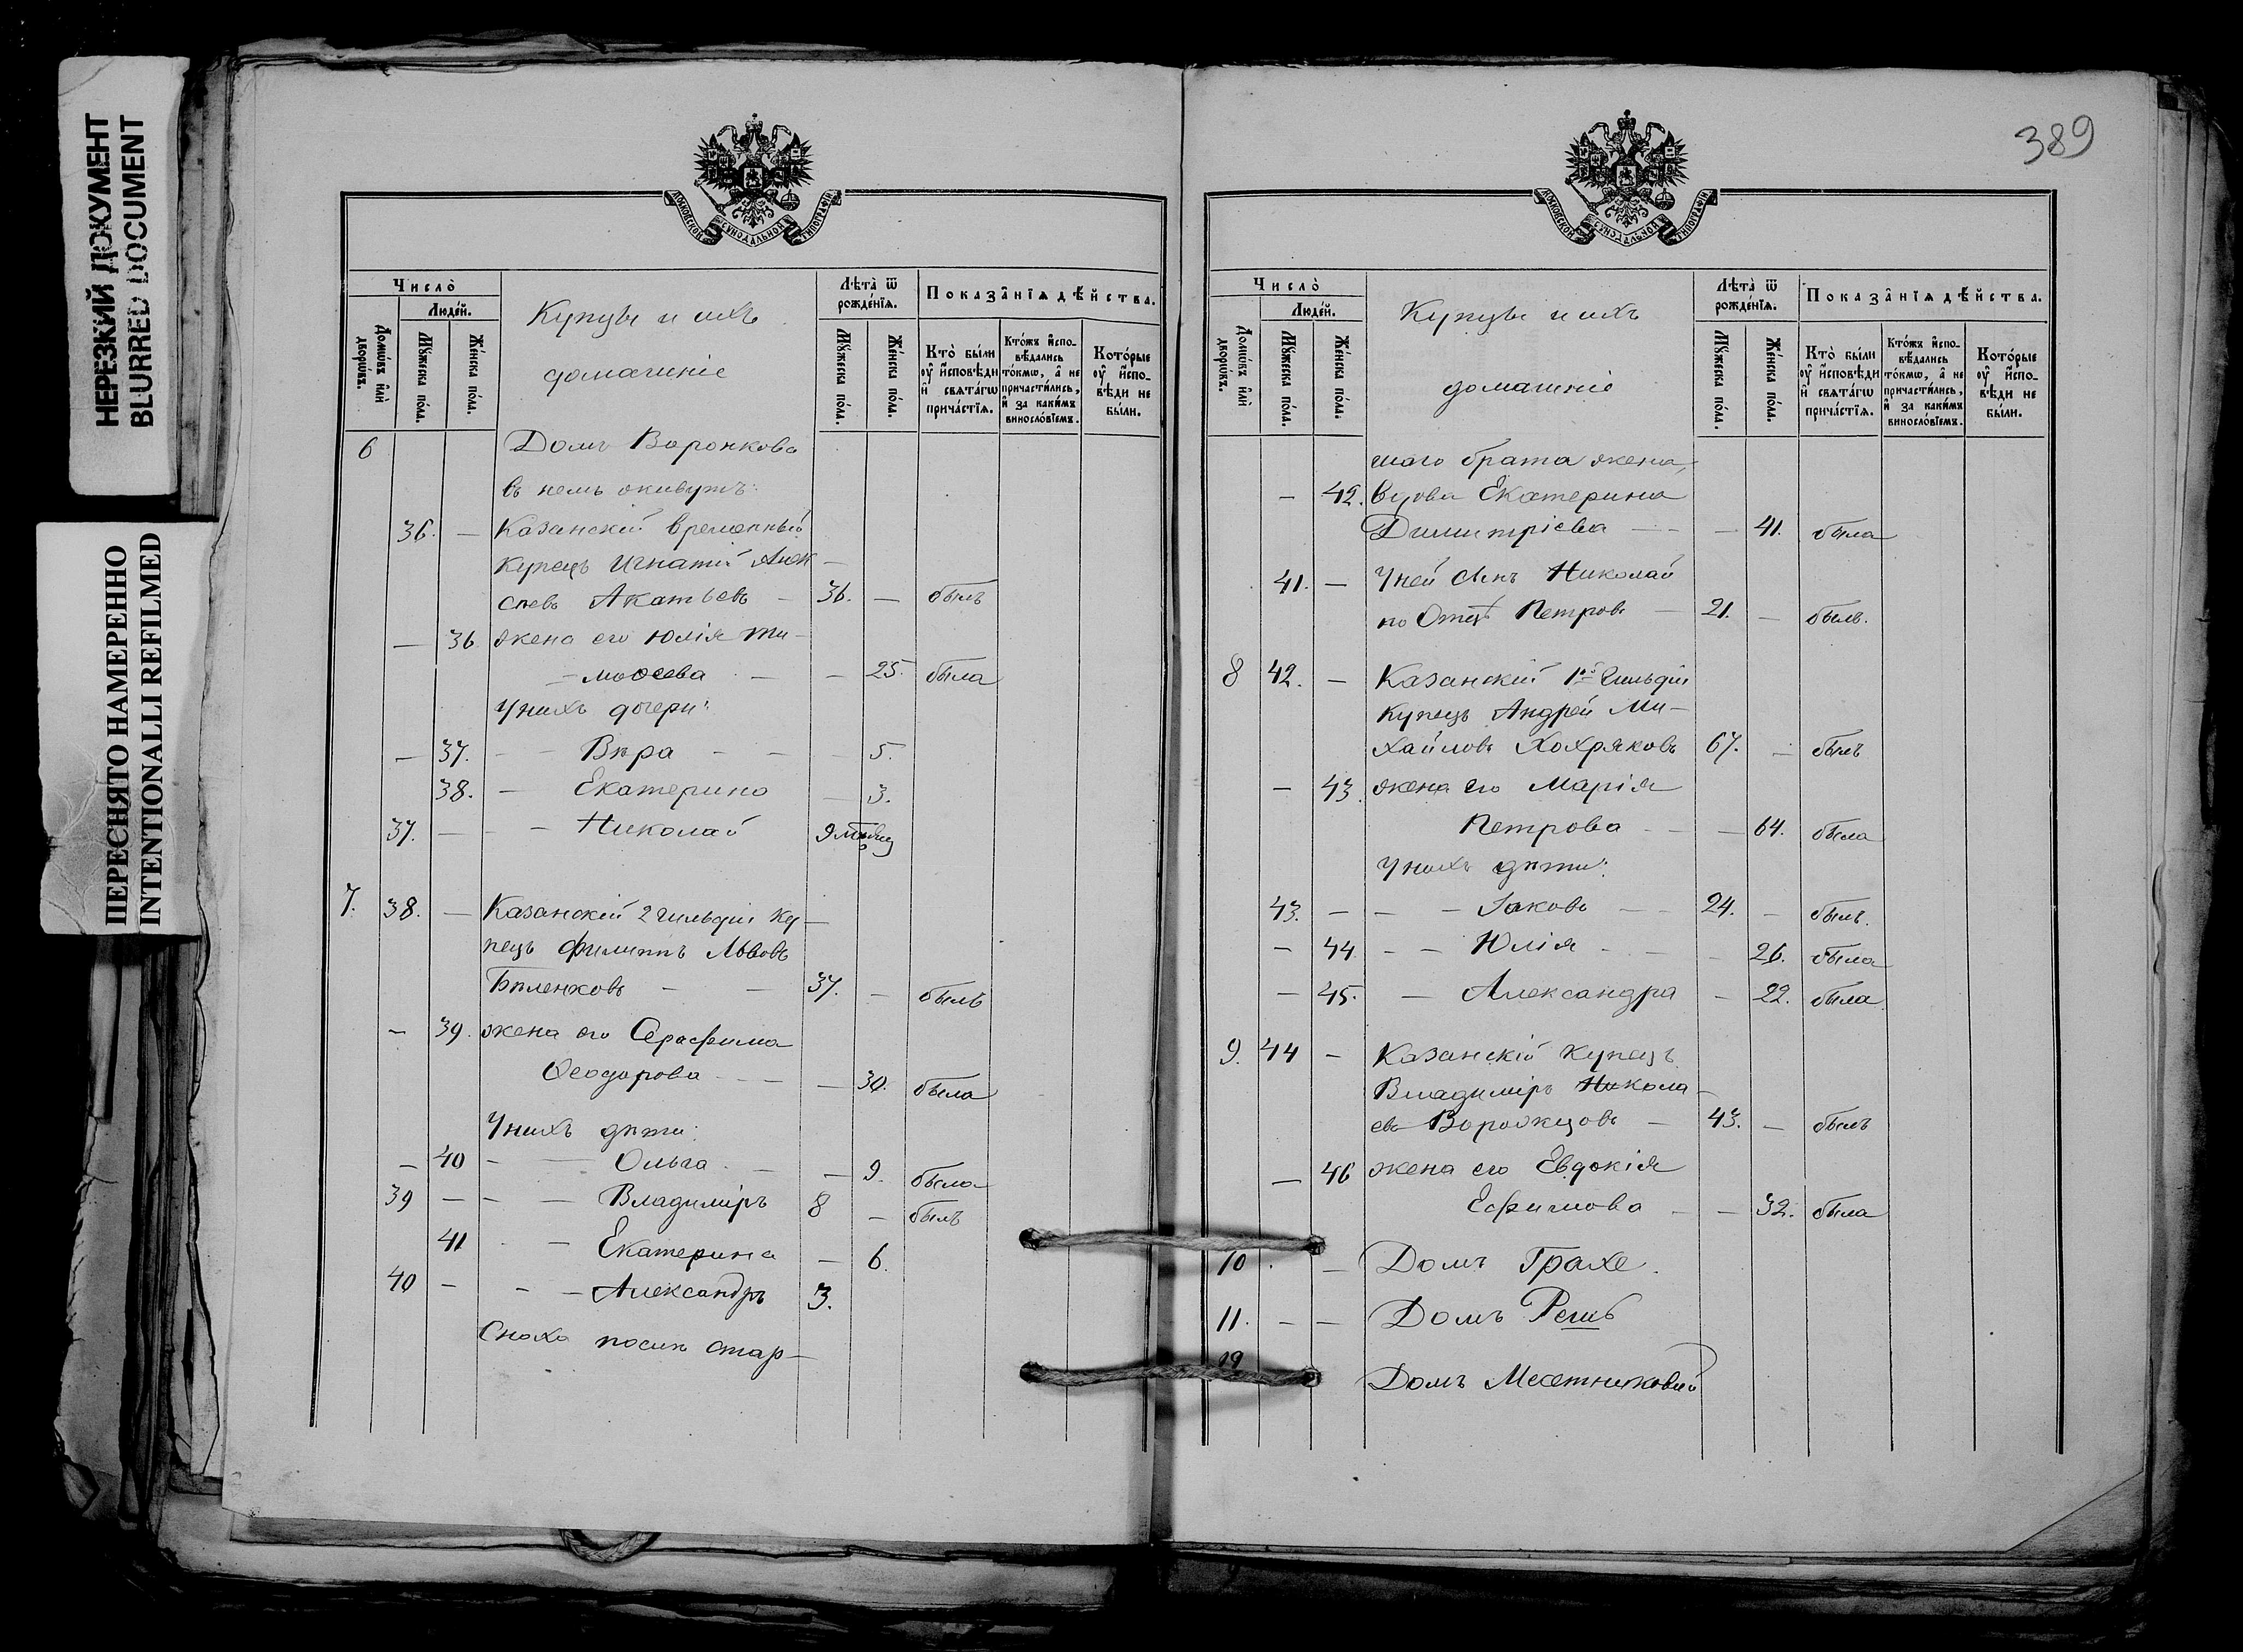 НЕРЕЗКИЙ ДОКУМЕНТ
BLURRED DOCUMENT
ПЕРЕСНЯТО НАМЕРЕННО
INTENTIONALLI REFILMED
МОСКОВСКОЙ СѴНОДАЛЬНОЙ ТИПОГРАФІИ
Число̀
Люде́й.
Домѡ́въ и҆лѝ дворѡ́въ.
Мꙋ́жеска по́ла.
Же́нска по́ла.
Купцы и ихъ
домашніе
Лѣта̀ ѿ рожде́нїѧ.
Мꙋ́жеска по́ла.
Же́нска по́ла.
Показа̑нїѧ дѣ́йства.
Кто̀ бы́ли оу҆ и҆́сповѣди и҆ свѧта́гѡ прича́стїѧ.
Кто́жъ и҆сповѣ́дались то́кмѡ, а҆ не причасти́лись, и҆ за каки́мъ виносло́вїемъ.
Кото́рые оу҆ и҆́сповѣди не бы́ли.
6 Домъ Воронкова
въ немъ живутъ:
36. — Казанскій временный
купецъ Игнатій Алек-
сѣевъ Акатьевъ — 36. — былъ
— 36 жена его Юлія Ти-
моѳеева — — 25. была
У нихъ дочери:
— 37. — — Вѣра — — — 5.
38. — Екатерина — 3.
37. — — — Николай 9 мѣсяц
7. 38. — Казанскій 2 гильдіи ку-
пецъ Филиппъ Львовъ
Бѣленковъ — — 37. — былъ
— 39. жена его Серафима
Ѳеодорова — — — 30. была
У нихъ дѣти:
— 40 — — Ольга — — 9. была
39 — — — Владиміръ 8 — былъ
41 — — Екатерина — 6.
40 — — — Александръ 3.
Сноха
389
МОСКОВСКОЙ СѴНОДАЛЬНОЙ ТИПОГРАФІИ
Число̀
Люде́й.
Домѡ́въ и҆лѝ дворѡ́въ.
Мꙋ́жеска по́ла.
Же́нска по́ла.
Купцы и ихъ
домашніе
Лѣта̀ ѿ рожде́нїѧ.
Мꙋ́жеска по́ла.
Же́нска по́ла.
Показа̑нїѧ дѣ́йства.
Кто̀ бы́ли оу҆ и҆́сповѣди и҆ свѧта́гѡ прича́стїѧ.
Кто́жъ и҆сповѣ́дались то́кмѡ, а҆ не причасти́лись, и҆ за каки́мъ виносло́вїемъ.
Кото́рые оу҆ и҆́сповѣди не бы́ли.
шаго брата жена,
— 42. вдова Екатерина
Димитріева — — — 41. была
41. — У ней сынъ Николай
по Отцѣ Петровъ — 21. — былъ.
8 42. — Казанскій 1й Гильдіи
купецъ Андрей Ми-
хайловъ Хохряковъ 67. — былъ
— 43. жена его Марія
Петрова — — 64. была
У нихъ дѣти:
43. — — — Іаковъ — — 24. — былъ.
— 44. — — Юлія — — — 26. была
— 45. — Александра — 22. была
9. 44 — Казанскій купецъ
Владиміръ Никола-
евъ Ворожцовъ — 43. — былъ
— 46 жена его Евдокія
Ефимова — — 32. была
10 . — Домъ Грахе.
11. — — Домъ Решъ
Домъ